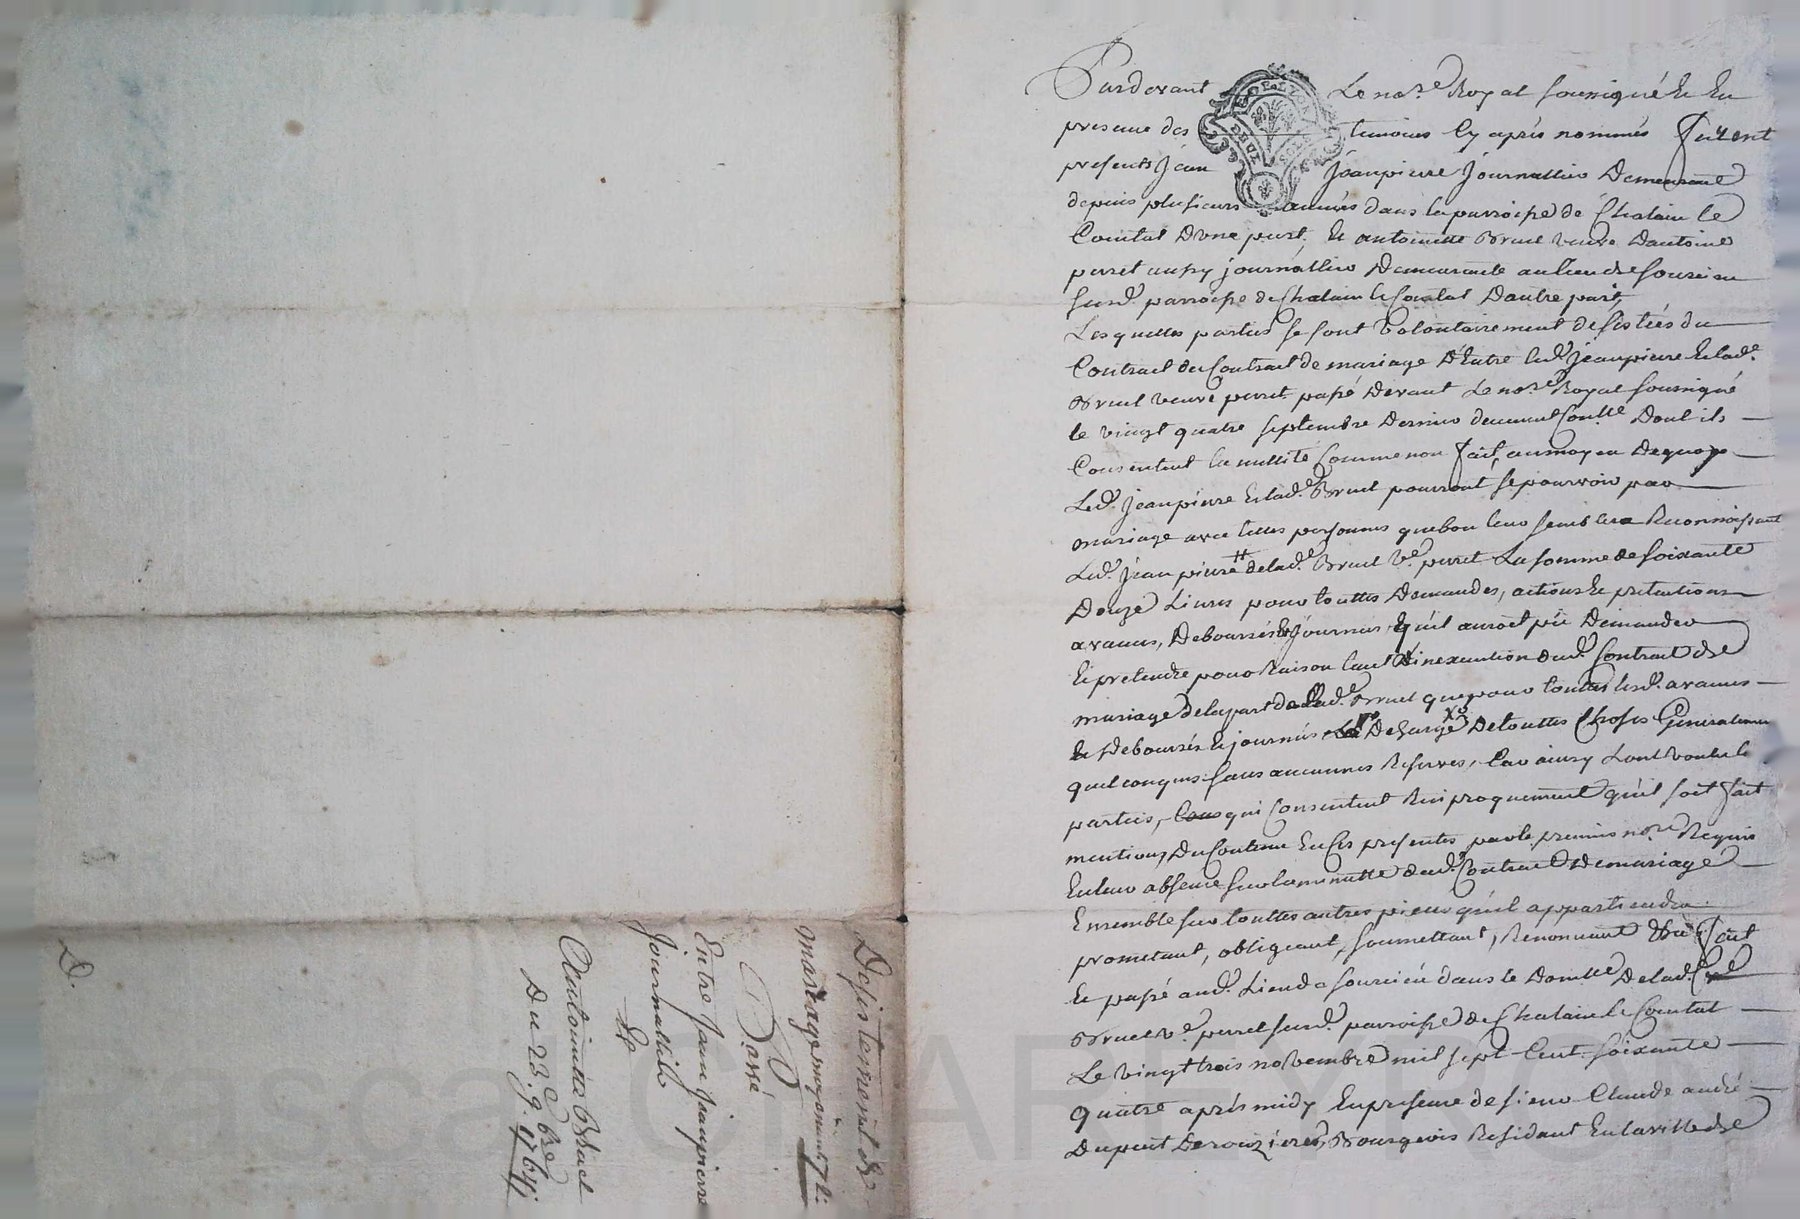 Pardevant Le no.re Royal soussigné Et En
presence des temoins Cy aprés nommés furent
presents Jean Jeanpierre Journallier Demeurant
depuis plusieurs années dans la parroisse de Chalain le
Comtal D'une part, Et antoinette Bruel veuve D'antoine
perret aussy journallier Demeurante au lieu de Sourcieu
susd. parroisse de Chalain le Comtal D'autre part,
Lesquelles parties se sont volontairement desistées du
Contract du Contract de mariage D'Entre led. Jeanpierre Et lad.e
Bruel veuve perret passé Devant Le no.re Royal soussigné
le vingt quatre septembre Dernier Dont ils
Consentent la nullité Comme non fait, au moyen Dequoy
Led. Jeanpierre Et lad.e Bruel pourront se pourvoir par
mariage avec telles personnes que bon leur semblera Reconnoissant
Led. Jean pierre de lad.e Bruel v.e perret La somme de soixante
Douze Livres pour touttes Demandes, actions Et pretentions
avances, Deboursés Et journées qu'il auroit pû Demander
Et pretendre pour Raison tant D'inexecution dud. Contract de
mariage De la part de lad.e Bruel que pour touttes lesd. avances
Et Deboursés Et journées De touttes Choses Generalement
quelconques sans aucunnes Reserves, Car ainsy L'ont voulu les
parties, qui Consentent Reciproquement qu'il soit fait
mention Du Contenu En Ces presentes par le premier no.re Requis
En leur absence sur la minutte dud. Contract De mariage
Ensemble sur touttes autres pieces qu'il appartiendra
promettant, obligeant, soumettant, Renonçant fait
Et passé aud. Lieu de Sourcieu dans le Domicille De lad.e
Bruel v.e perret susd. parroisse de Chalain le Comtal
Le vingt trois novembre mil sept Cent soixante
quatre aprés midy En presence de sieur Claude andré
Dupuit Derouzieres, Bourgeois Residant En la ville de
Desistement de
mariage moyennant 72 l:
Passé
Entre Jean Jeanpierre
Journallier
Et
Antoinette Bruel
Du 23. 9.bre 1764.
D.